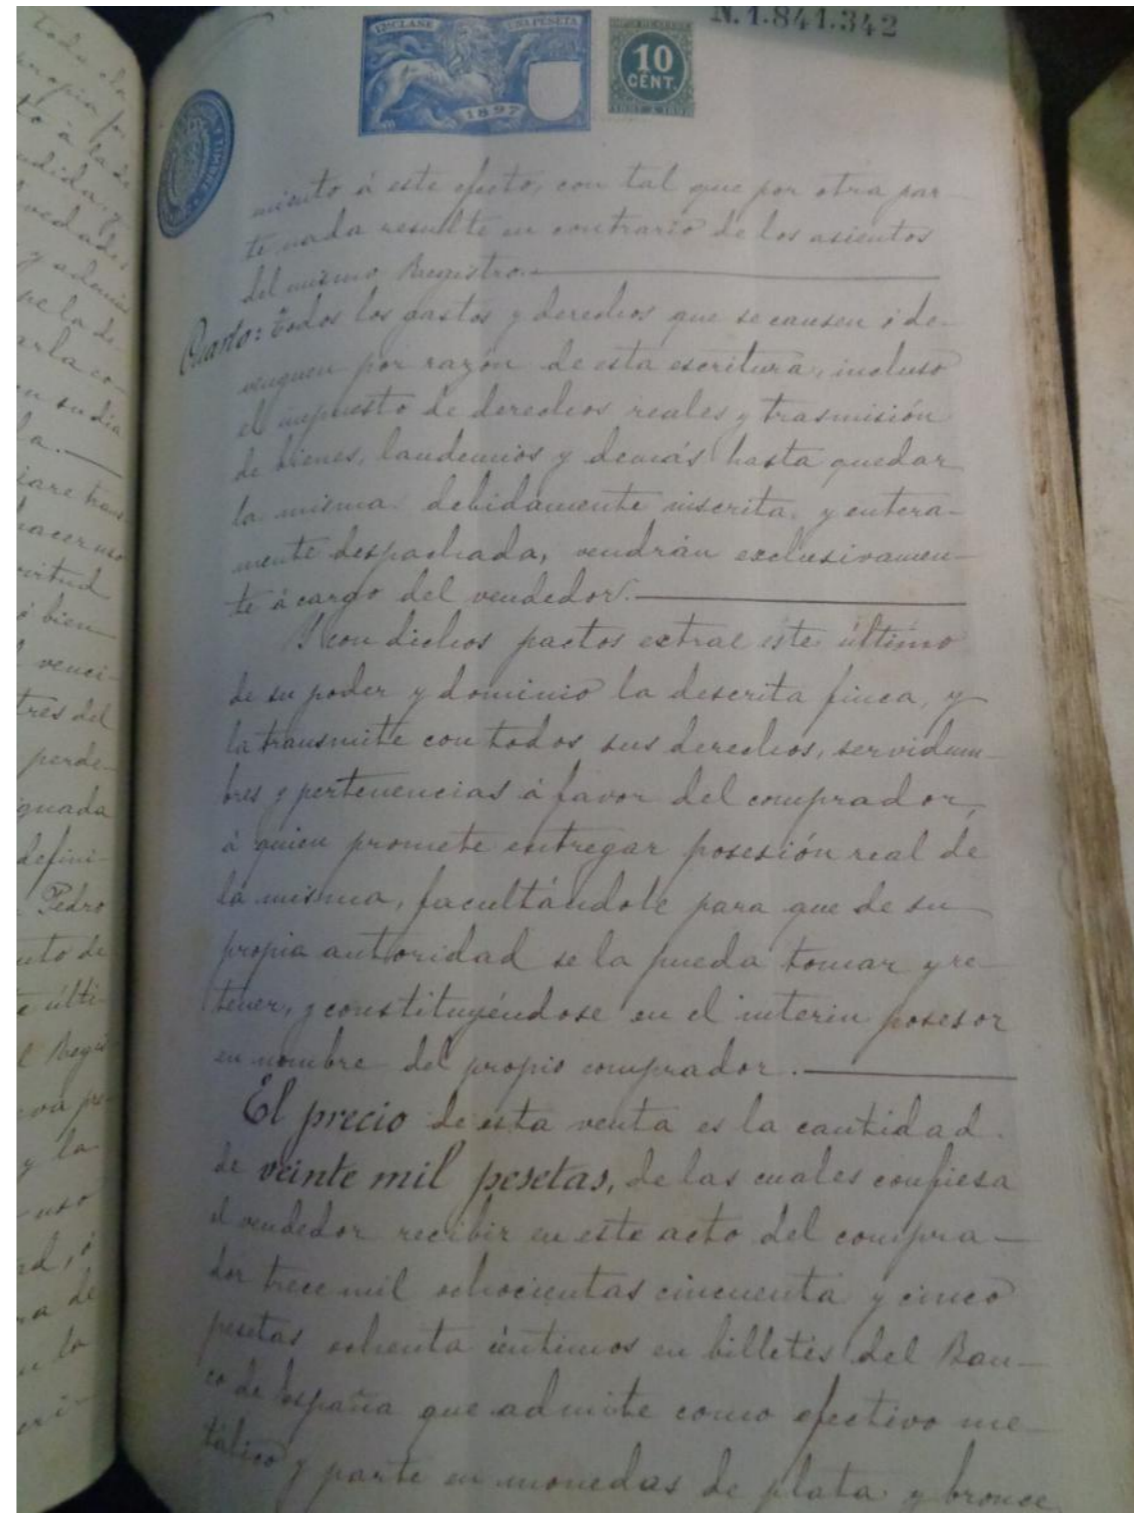 N.1.841.342
12ª CLASE UNA PESETA
1897
10
CENT.
miento á este efecto, con tal que por otra par-
te nada resulte en contrario de los asientos
del mismo Registro.
Cuarto: Todos los gastos y derechos que se causen ó de-
venguen por razón de esta escritura, incluso
el impuesto de derechos reales y trasmisión
de bienes, laudemios y demás hasta quedar
la misma debidamente inscrita y entera-
mente despachada, vendrán exclusivamen-
te á cargo del vendedor.
Y con dichos pactos extrae este último
de su poder y dominio la descrita finca, y
la transmite con todos sus derechos, servidum-
bres y pertenencias á favor del comprador,
á quien promete entregar posesión real de
la misma, facultándole para que de su
propia autoridad se la pueda tomar y re-
tener, y constituyéndose en el interin posesor
en nombre del propio comprador.
El precio de esta venta es la cantidad
de veinte mil pesetas, de las cuales confiesa
el vendedor recibir en este acto del compra-
dor trece mil ochocientas cincuenta y cinco
pesetas ochenta céntimos en billetes del Ban-
co de España que admite como efectivo me-
tálico y parte en monedas de plata y bronce